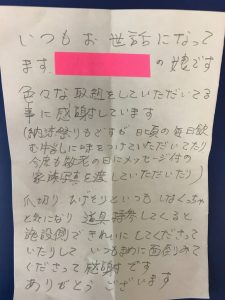 いつもお世話になって
ます。 の娘です
色々な取組をしていただいてる
事に感謝しています
(納涼祭りもですが日頃の毎日飲
む牛乳に味をつけていただいてたり
今度も敬老の日にメッセージ付の
家族写真を渡していただいたり)
爪切り ひげそりといつもしなくっちゃ
と気になり 道具持参してくると
施設側できれいにしてくださって
いたりして いつもまめに面倒みて
くださって感謝です
ありがとうございます